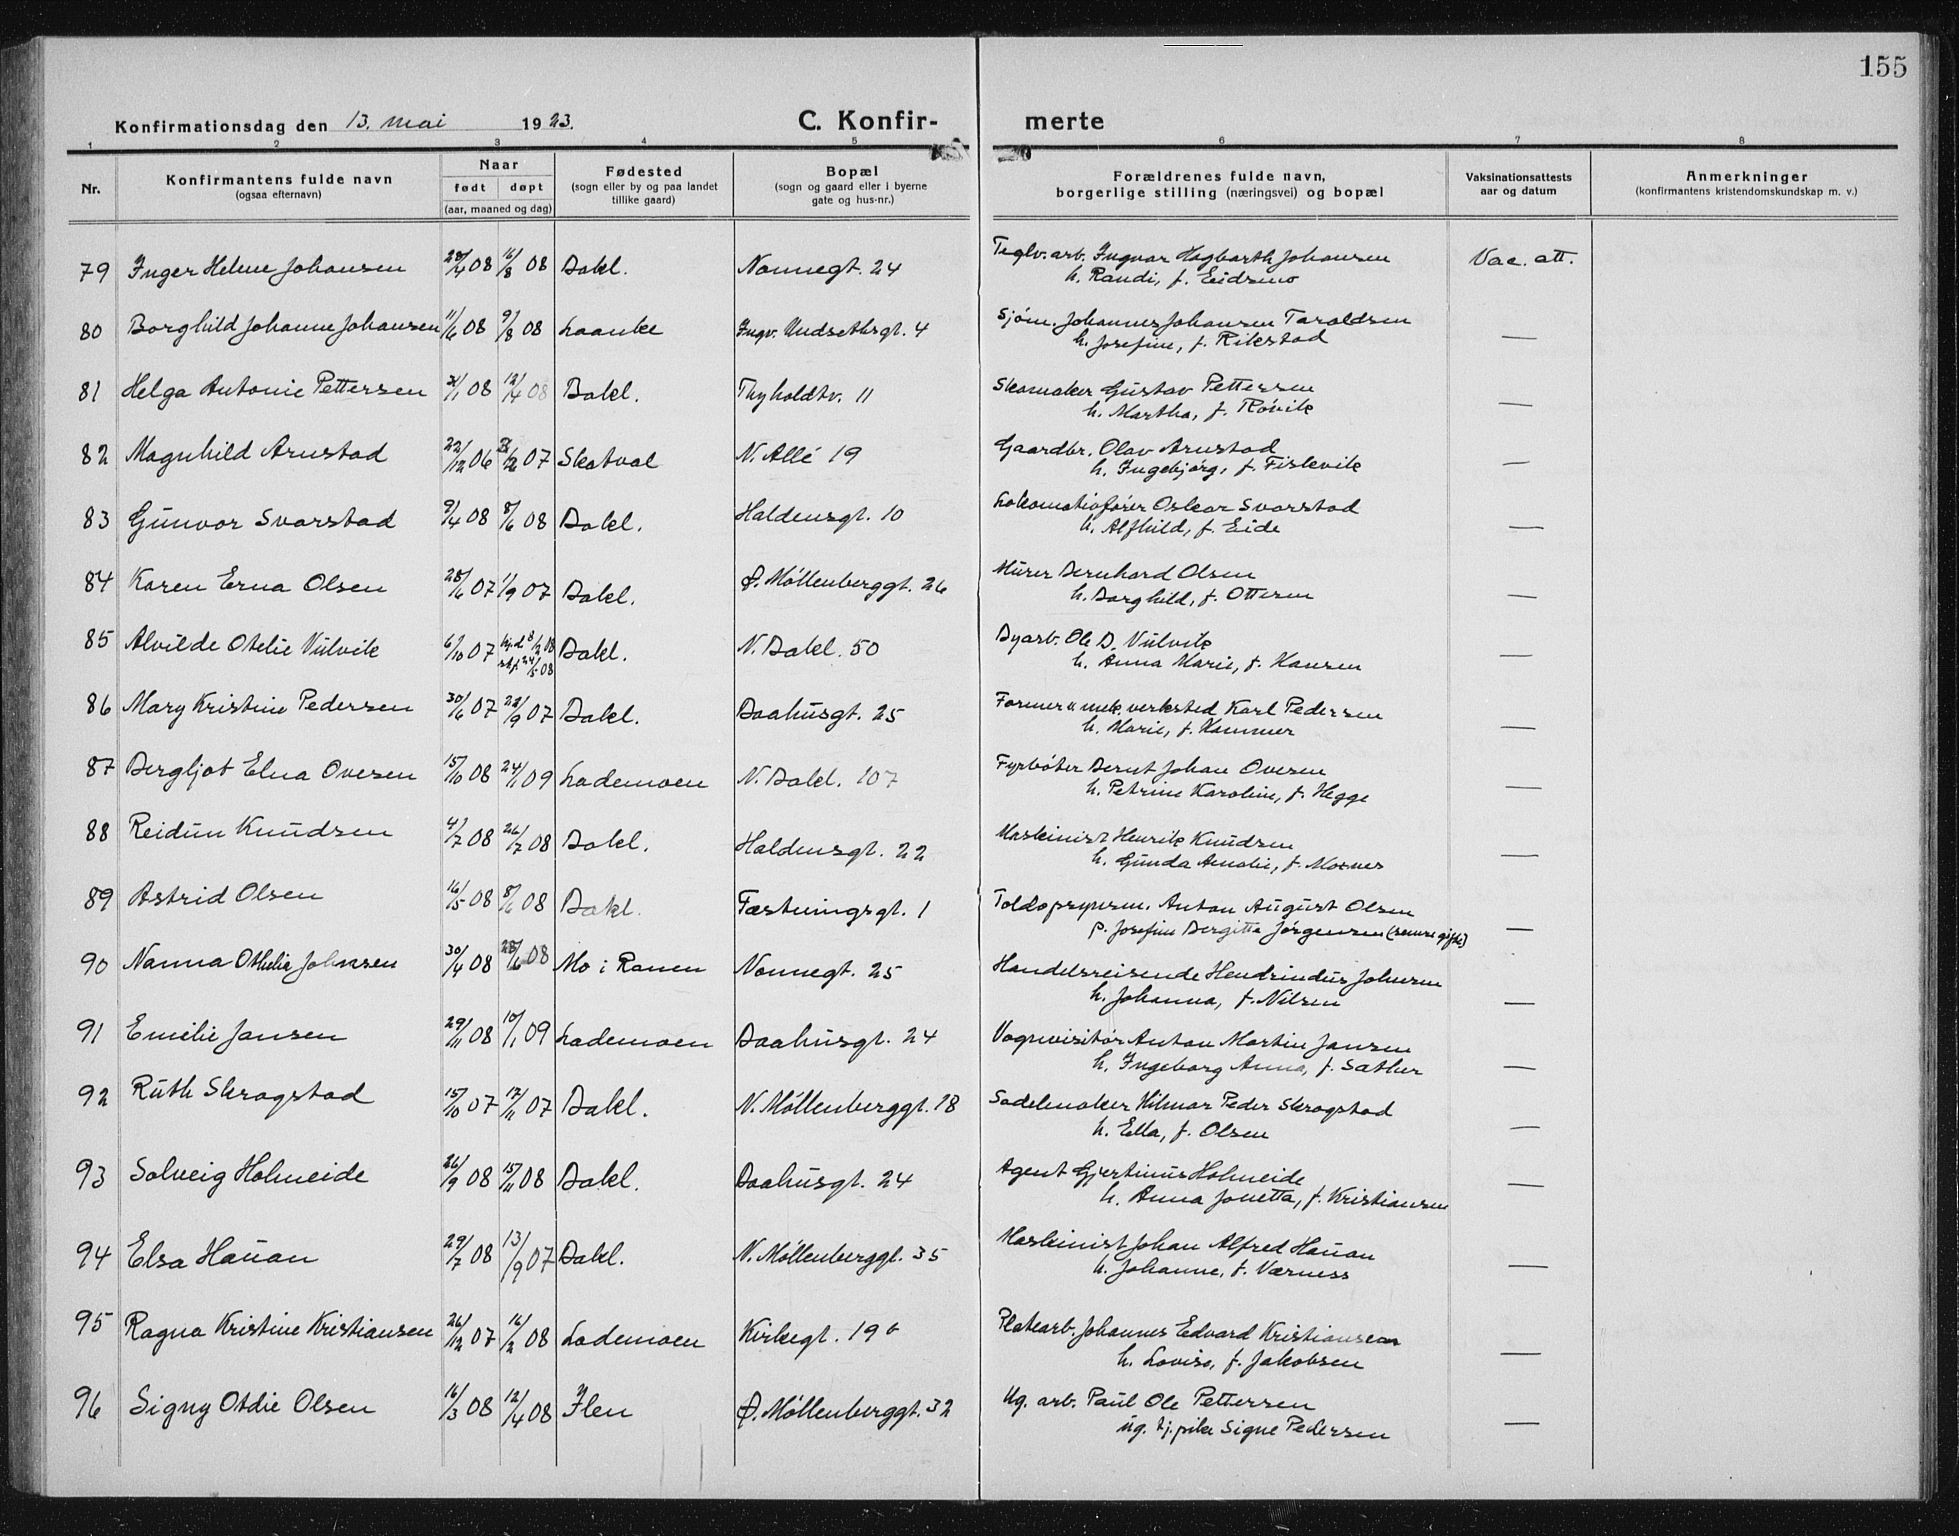 155
Konfirmationsdag den 13. mai 1923. C. Konfirmerte
1 2 3 4 5 6 7 8
Nr. | Konfirmantens fulde navn (ogsaa efternavn) | Naar født døpt (aar, maaned og dag) | Fødested (sogn eller by og paa landet tillike gaard) | Bopæl (sogn og gaard eller i byerne gate og hus-nr.) | Forældrenes fulde navn, borgerlige stilling (næringsvei) og bopæl | Vaksinationsattests aar og datum | Anmerkninger (konfirmantens kristendomskundskap m. v.)
79 Inger Helene Johansen 28/4 08 16/8 08 Bakl. Nonnegt. 24 Teglv. arb. Ingvar Hagbarth Johansen Vac. att.
h. Randi, f. Eidsmo
80 Borghild Johanne Johansen 11/6 08 9/8 08 Laanke Ingv. Undsethsgt. 4 Sjøm. Johannes Johansen Taraldsen —
h. Josefine, f. Rikstad
81 Helga Antonie Pettersen 31/1 08 12/4 08 Bakl. Thyholdtv. 11 Skomaker Gustav Pettersen —
h. Martha, f. Røvik
82 Magnhild Arnstad 22/12 06 07 Skatval N. Allé 19 Gaardbr. Olav Arnstad —
h. Ingebjørg, f. Fiskvik
83 Gunvor Svarstad 9/4 08 8/6 08 Bakl. Haldensgt. 10 Lokomotivfører Oskar Svarstad —
h. Alfhild, f. Eide
84 Karen Erna Olsen 28/6 07 1/9 07 Bakl. Ø. Møllenberggt. 26 Murer Bernhard Olsen —
h. Borghild, f. Ottesen
85 Alvilde Otelie Vulvik 6/10 07 hj.d 8/2 08 Bakl. N. Bakl. 50 Byarb. Ole B. Vulvik —
st.f. 24/5 08 h. Anna Marie, f. Hansen
86 Mary Kristine Pedersen 30/6 07 22/9 07 Bakl. Baahusgt. 25 Former v. mek. verksted Karl Pedersen —
h. Marie, f. Hammer
87 Bergljot Elna Ovesen 15/10 08 24/1 09 Lademoen N. Bakl. 107 Fyrbøter Bernt Johan Ovesen —
h. Petrine Karoline, f. Hegge
88 Reidun Knudsen 4/7 08 26/7 08 Bakl. Haldensgt. 22 Maskinist Henrik Knudsen —
h. Gunda Amalie, f. Mosnes
89 Astrid Olsen 16/5 08 8/6 08 Bakl. Fæstningsgt. 1 Toldopsynsm. Anton August Olsen —
p. Josefine Bergitta Jørgensen (senere gifte)
90 Nanna Othelie Johnsen 30/4 08 28/6 08 Mo i Ranen Nonnegt. 25 Handelsreisende Hendrindus Johnsen —
h. Johanna, f. Nilsen
91 Emilie Jansen 29/11 08 10/1 09 Lademoen Baahusgt. 24 Vognvisitør Anton Martin Jansen —
h. Ingeborg Anna, f. Sæther
92 Ruth Skrogstad 15/10 07 17/11 07 Bakl. N. Møllenberggt. 18 Sadelmaker Hilmar Peder Skrogstad —
h. Ella, f. Olsen
93 Solveig Holmeide 26/9 08 15/11 08 Bakl. Baahusgt. 24 Agent Gjertinus Holmeide —
h. Anna Jonetta, f. Kristiansen
94 Elsa Hauan 29/7 08 13/9 07 Bakl. N. Møllenberggt. 35 Maskinist Johan Alfred Hauan —
h. Johanne, f. Værness
95 Ragna Kristine Kristiansen 26/12 07 16/2 08 Lademoen Kirkegt. 19 b Platearb. Johannes Edvard Kristiansen —
h. Lovise, f. Jakobsen
96 Signy Otdie Olsen 16/3 08 12/4 08 Ilen Ø. Møllenberggt. 32 Ug. arb. Paul Ole Pettersen —
ug. tj.pike Signe Pedersen